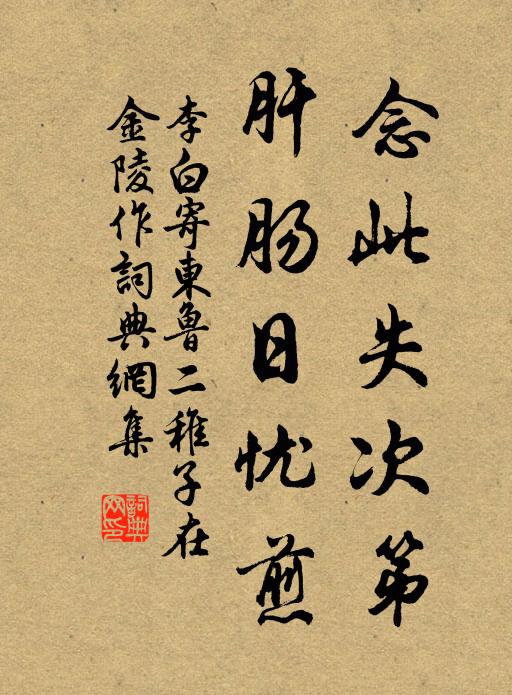 念此失次第
肝肠日忧煎
李白寄東魯二稚子在
金陵作詞典網集
詞典网印